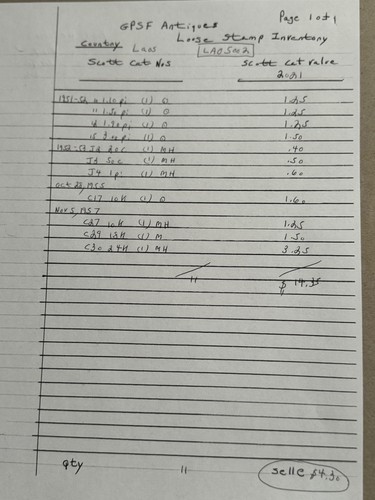 Page 1 of 1
GPSF Antiques
Loose Stamp Inventory
Country Laos LAOS002
Scott Cat Nos Scott Cat Value
2021
1951-52 1.10 pi (1) O 1.25
(1) O 1.25
(1) O 1.25
(1) O 1.50
J2 20c (1) MH .40
J3 50c (1) MH .50
J4 1 pi (1) MH .60
1955
C17 10K (1) O 1.60
Nov 5, 1957
C27 10K (1) MH 1.25
C29 15K (1) M 1.50
C30 24K (1) MH 3.25
11 $ 14.35
qty 11 selle $4.30